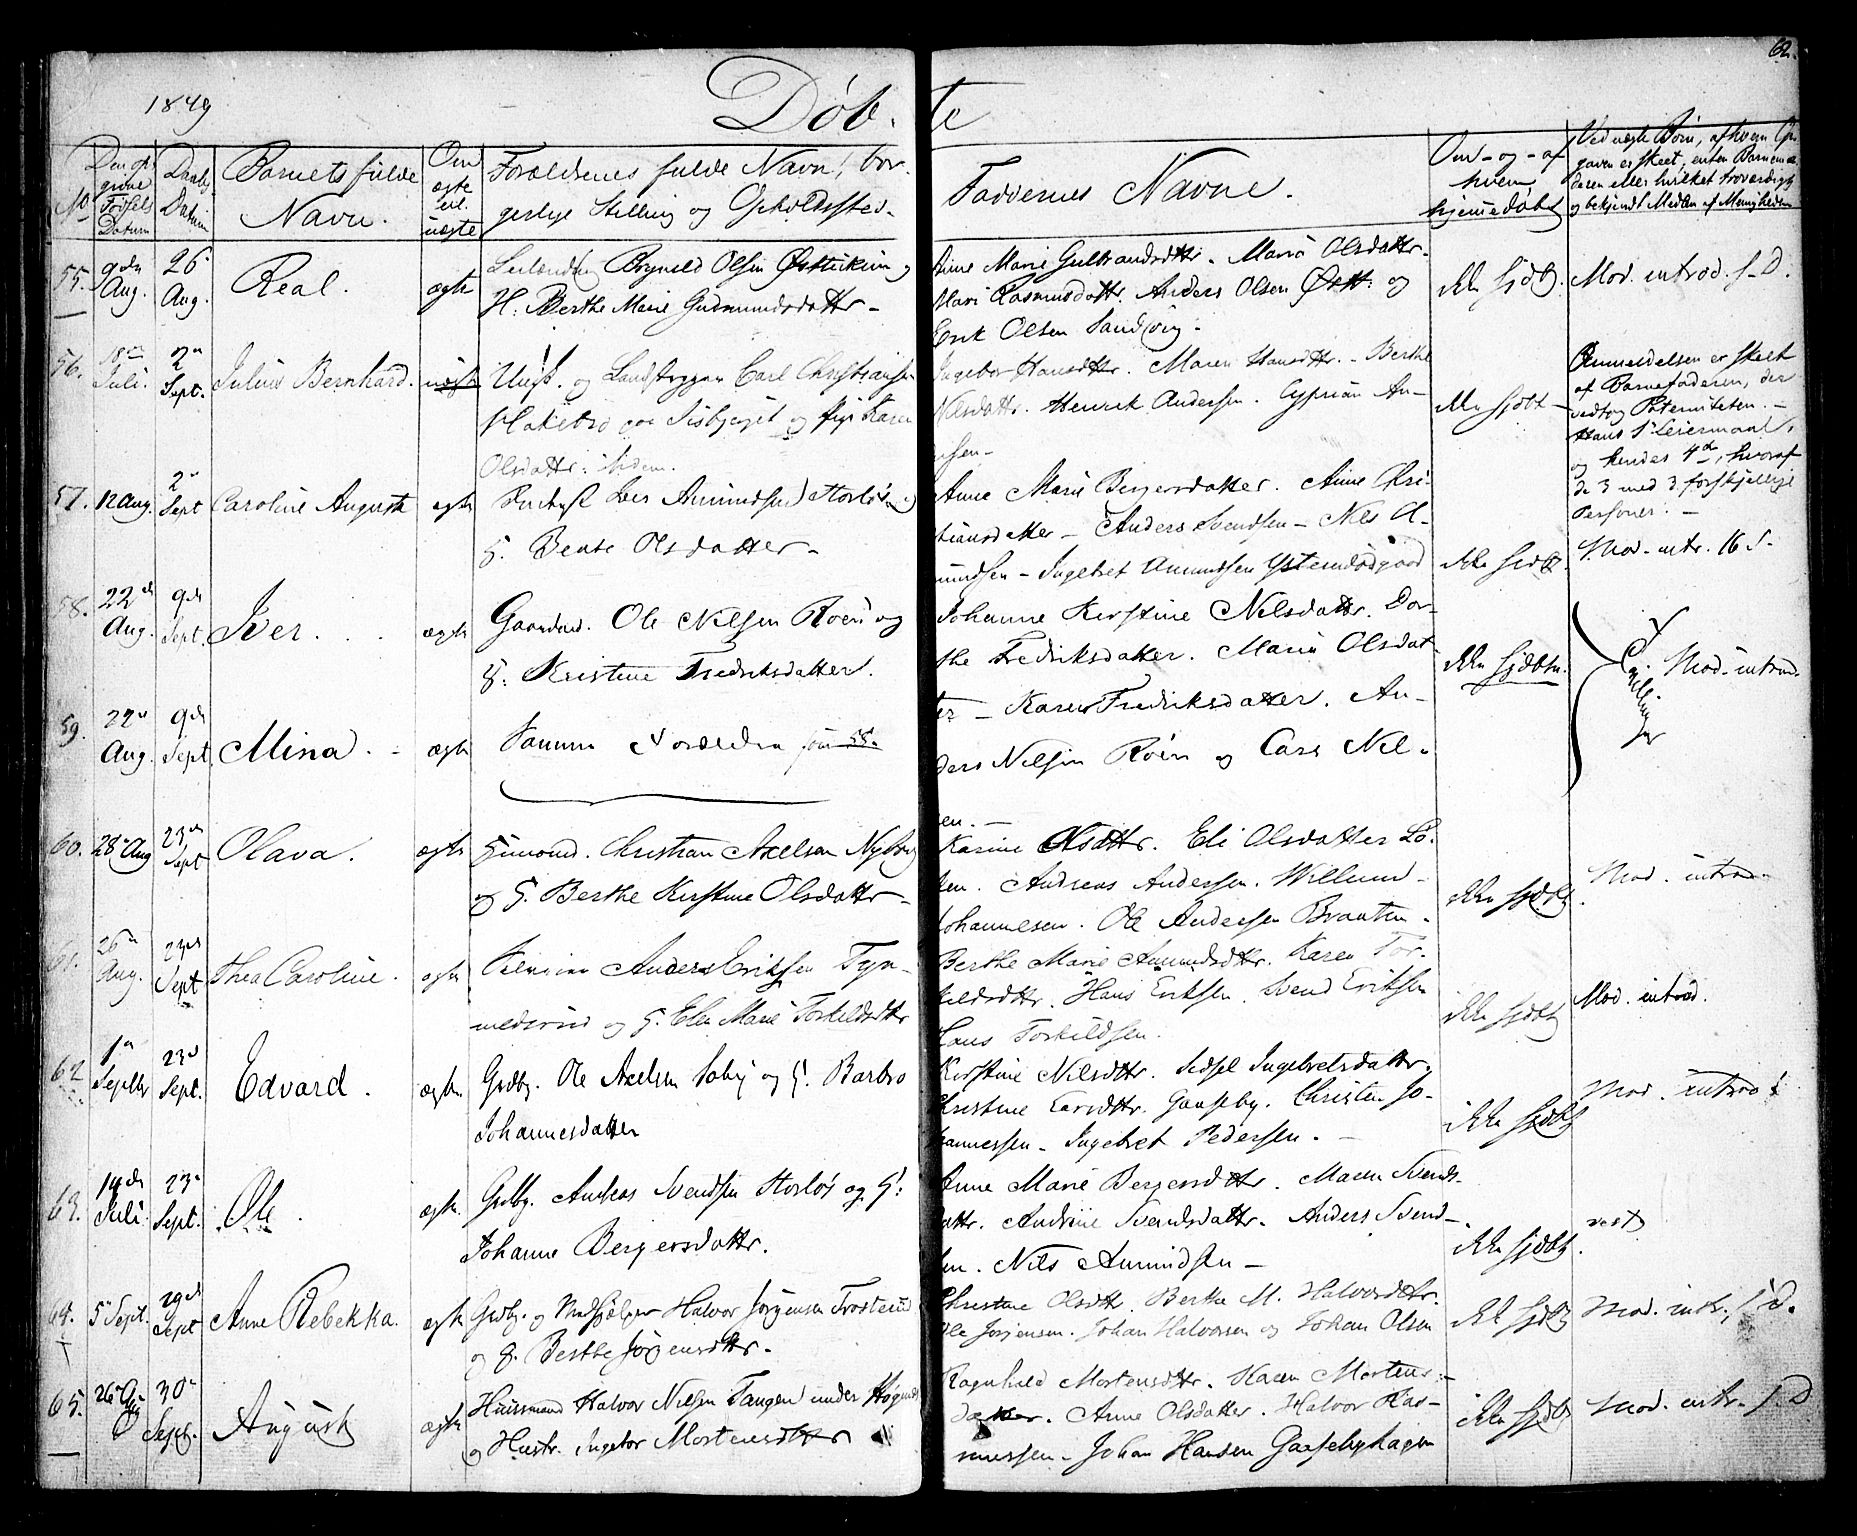 62.
1849
Døbte
No
Den opgivne Fødsels Datum
Daabs Datum
Barnets fulde Navn.
Om ægte el. uægte
Forældrenes fulde Navn, borgerlige Stilling og Opholdssted.
Faddernes Navne.
Om - og - af hvem hjemmedøbt
Ved uægte Børn, af hvem Opgaven er skeet, enten Barnemoderen eller hvilket troværdigt og bekjendt Medlem af Menigheden
55. 9de Aug. 26 Aug. Real. ægte
Brynild Olsen og
H. Berthe Marie Gudmundsdatter -
Anne Marie Gulbrandsdttr. Maria Olsdattr.
Mari Rasmusdattr. Anders Olsen Østt. og
Erik Olsen Sandvig.
ikke hjdbt. Mod. introd. s. D.
56. 18 Juli. 2 Sept. Julius Bernhard. uægte
Ungk. og Landstryger Carl Christiansen
og Pige Karen
Olsdattr. ibidem.
Ingebor Hansdttr. Maren Hansdttr. - Berthe
Nilsdattr. Henrik Andersen. Cyprian An-
sen -
ikke hjdbt -
Anmeldelsen er skeet
af Barnefaderen, der
vedtog Paterniteten. -
Hans 1ste Leiermaal,
og hendes 4de, hvoraf
de 3 med 3 forskjellige
Personer. -
57. 12 Aug. 2 Sept Caroline Auguste ægte
Lars Amundsen Storløs og
H. Bente Olsdatter -
Anne Marie Bergersdatter. Anne Chri-
stiansdatter - Anders Svendsen - Nils A-
mundsen - Ingebret Amundsen
ikke hjdbt. Mod. intr. 16 S.
58. 22de Aug. 9de Sept. Iver. ægte
Gaardmd. Ole Nilsen Roen og
H. Kristine Fredriksdatter.
Johanne Kirstine Nilsdattr. Dor-
the Fredriksdatter. Maria Olsdat-
ter - Karen Fredriksdatter. An-
ikke hjdbte. Tvillinger Mod. introd.
59. 22 Aug. 9de Sept. Mina. - ægte
Samme Forældre som 58.
ders Nilsen Roen og Lars Nil-
sen. -
60. 28 Aug 23de Sept Olava. ægte
Huusmd. Christian Axelsen Nyborg
og H. Berthe Kirstine Olsdattr -
Karine Olsdttr. Eli Olsdatter Lø-
ken. Andreas Andersen. Willum
Johannesen. Ole Andersen Braaten.
ikke hjdbt. Mod. introd.
61. 26 Aug. 23de Sept Thea Caroline. ægte
Anders Eriksen Fyn-
og H. Elen Marie Torkildsdttr
Berthe Marie Amundsdttr. Karen Tor-
kildsdttr. Hans Eriksen. Svend Eriksen
Hans Torkildsen.
ikke hjdbt Mod. introd.
62 1 Septbr 23d Sept. Edvard. ægte.
Grdbr. Ole Axelsen og H. Barbro
Johannesdatter
Kirstine Nilsdttr. Sidsel Ingebretsdattr.
Christine Gaaseby. Christen Jo-
hannessen - Ingebret Pedersen. -
ikke hjdbt Mod. introd
63. 14de Juli 23 Sept. Ole. ægte.
Grdbr. Andreas Svendsen Storløs og H.
Johanne Bergersdattr.
Anne Marie Bergersdttr. Maren Svends-
dattr. Andrine Svendsdattr. Anders Svend-
sen. Nils Amundsen -
ikke hjdbt.
64. 5 Sept. 29de Sept Anne Rebekka. ægte
Grdbr. og Halvor Jørgensen Trosterud
og H. Berthe Jørgensdttr.
Christine Olsdttr. Berthe M. Halvorsdttr.
Ole Jørgensen. Johan Halvorsen og Johan Olsen
ikke hjdbt Mod. intr. s. D.
65. 26 Aug 30 Sept. August ægte
Huusmand Halvor Nilsen Tangen under
og Hustr. Ingebor Mortensdttr
Ragnhild Mortensdttr. Karen Mortens-
datter. Anne Olsdatter. Halvor Ras-
mussen - Johan Hansen Gaasebyhagen
ikke hjdbt Mod. intr. s. D